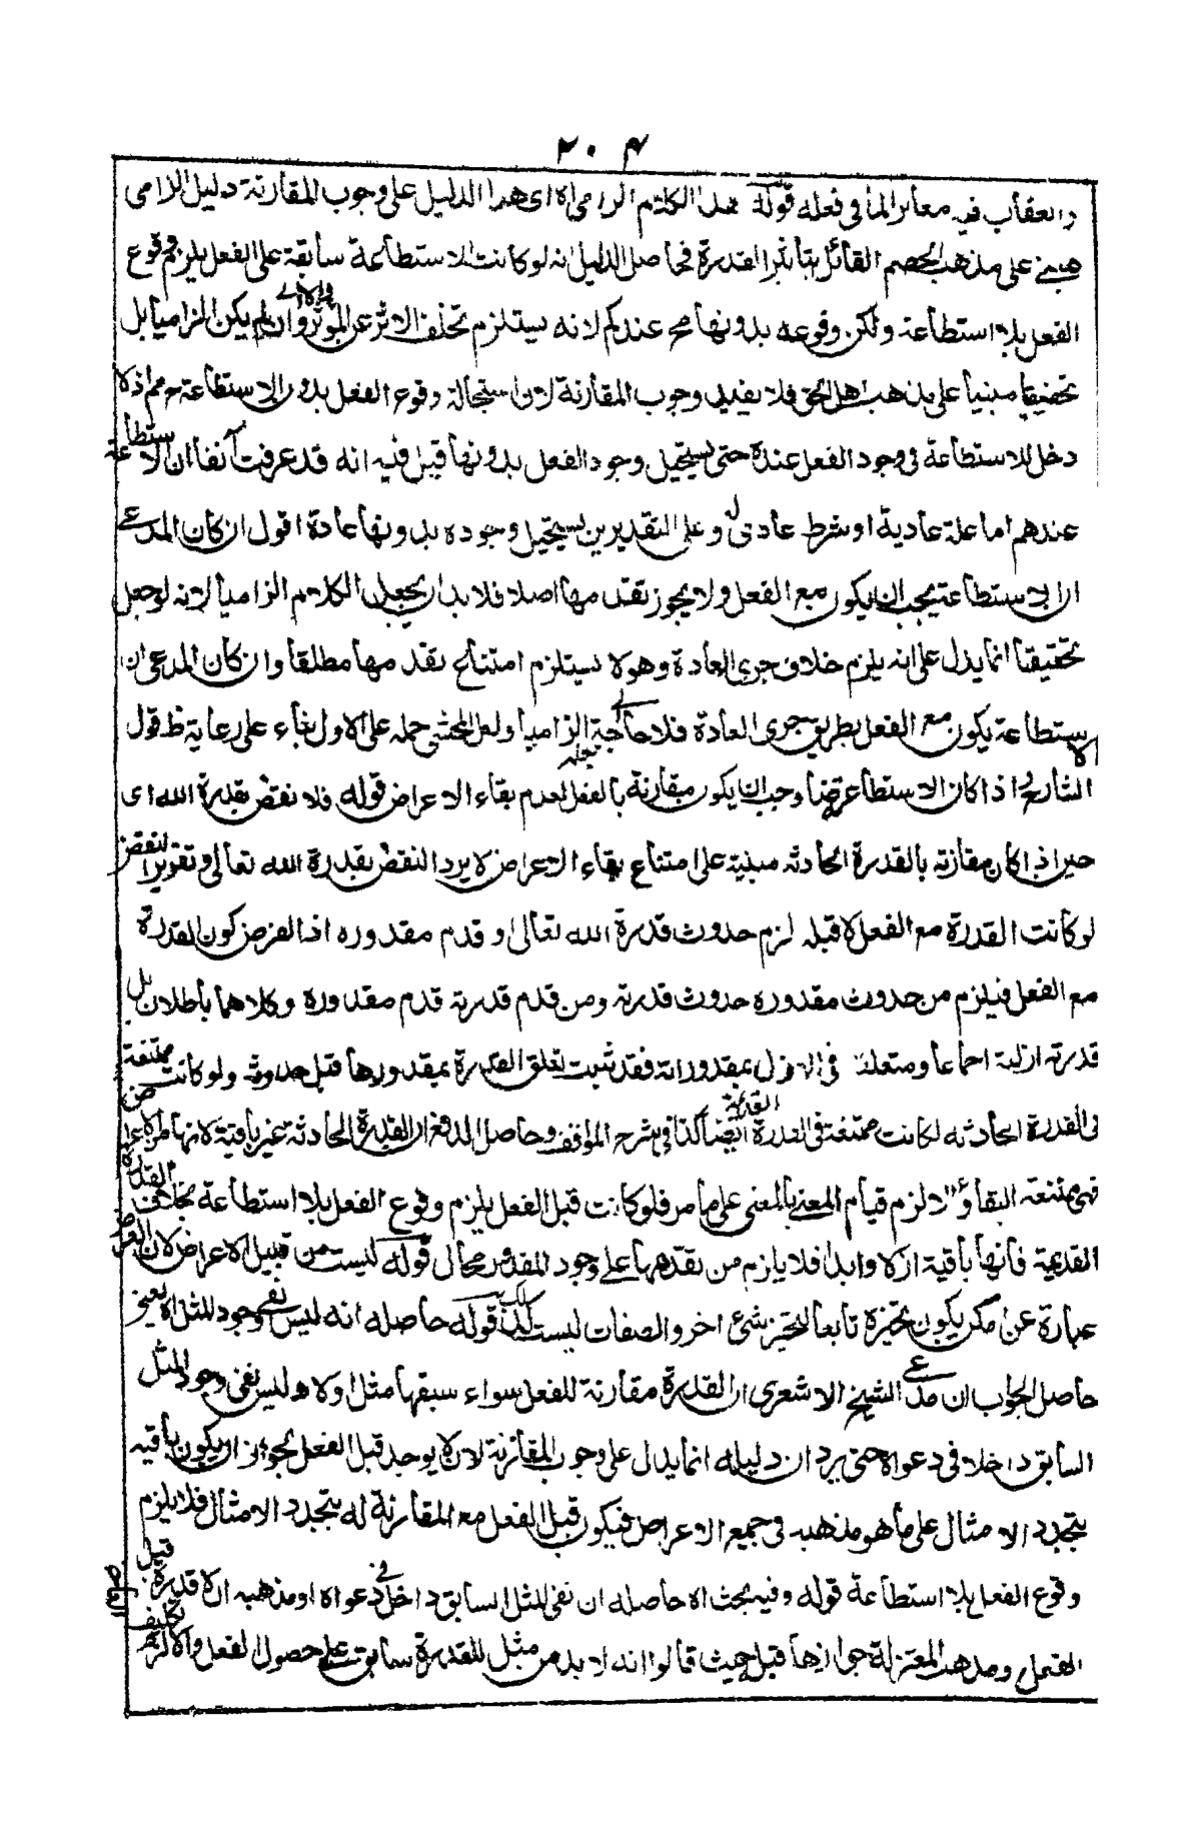 ۲۰۴
والعقاب فيه معاير لما في فعله قوله هذا الكلام الزامي اه اى هذا الدليل على وجوب المقارنة دليل الزامى
مبنى على مذهب الخصم القائل بتأثير القدرة فحاصل الدليل انه لو كانت الاستطاعة سابقة على الفعل يلزم وقوع
الفعل بلا استطاعة ولكن وقوعه بدونها مح عندكم لانه يستلزم تخلف الاثر عن المؤثر وان لم يكن الزاميا بل
تحقيقيا مبنيا على مذهب اهل الحق فلا يفيد وجوب المقارنة لان استحالة وقوع الفعل بدون الاستطاعة مم اذ لا
دخل للاستطاعة فى وجود الفعل عنده حتى يستحيل وجود الفعل بدونها قيل فيه انه قد عرفت آنفا ان الاستطاعة
عندهم اما علة عادية او شرط عادى له وعلى التقديرين يستحيل وجوده بدونها عادة اقول ان كان المدعى
ان الاستطاعة يجب ان يكون مع الفعل ولا يجوز تقدمها اصلا فلا بد ان يجعل الكلام الزاميا لانه لو جعل
تحقيقا انما يدل على انه يلزم خلاف جرى العادة وهو لا يستلزم امتناع تقدمها مطلقا وان كان المدعى ان
الاستطاعة يكون مع الفعل بطريق جرى العادة فلا حاجة الى جعله الزاميا ولعل المحشى حمله على الاول بناء على رعاية ظ قول
الشارح اذا كان الاستطاعة عرضا وجب ان يكون مقارنة بالفعل لعدم بقاء الاعراض قوله فلا نقض بقدرة الله اى
حين اذ كان مقارنة بالقدرة الحادثه مبنية على امتناع بقاء الاعراض لا يرد النقض بقدرة الله تعالى وتقرير النقض
لو كانت القدرة مع الفعل لا قبله لزم حدوث قدرة الله تعالى او قدم مقدوره اذ الفرض كون القدرة
مع الفعل فيلزم من حدوث مقدوره حدوث قدرته ومن قدم قدرته قدم مقدوره وكلاهما باطلان بل
قدرته ازلية اجماعا ومتعلقة فى الازل بمقدوراته فقد ثبت تعلق القدرة بمقدورها قبل حدوثه ولو كانت ممتنعة
فى القدرة الحادثه لكانت ممتنعة فى القدرة القديمة ايضا كذا فى شرح المواقف وحاصل الدفع ان القدرة الحادثة غير باقية لانها عرض
فهى ممتنعة البقاء والا لزم قيام المعنى بالمعنى على ما مر فلو كانت قبل الفعل يلزم وقوع الفعل بلا استطاعة بخلاف القدرة
القديمة فانها باقية ازلا وابدا فلا يلزم من تقدمها على وجود المقدور محال قوله ليست من قبيل الاعراض لان العرض
عبارة عن ممكن يكون تحيزه تابعا لتحيز شئ اخر والصفات ليست كذلك قوله حاصله انه ليس نفى وجود المثل اه يعنى
حاصل الجواب ان مدعى الشيخ الاشعرى ان القدرة مقارنة للفعل سواء سبقها مثل اولا وليس نفى وجود المثل
السابق داخلا فى دعواه حتى يرد ان دليله انما يدل على وجوب المقارنة لا انه لا يوجد قبل الفعل لجواز ان يكون باقيه
بتجدد الامثال على ما هو مذهبه فى جميع الاعراض فيكون قبل الفعل مع المقارنة له بتجدد الامثال فلا يلزم
وقوع الفعل بلا استطاعة قوله وفيه بحث اه حاصله ان نفى المثل السابق داخل فى دعواه او مذهبه ان لا قدرة قبل
الفعل ومذهب المعتزلة جوازها قبل حيث قالوا انه لا بد من مثل للقدرة سابق على حصول الفعل والا لزم تكليف العاجز